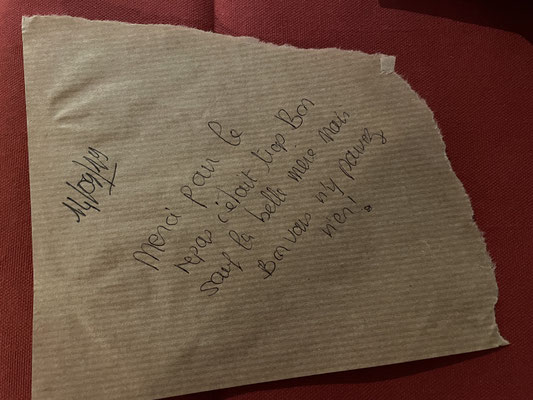 14/09/19
Merci pour le
repas c'était trop Bon
sauf la belle mère mais
Bon vous n'y pouvez
rien !